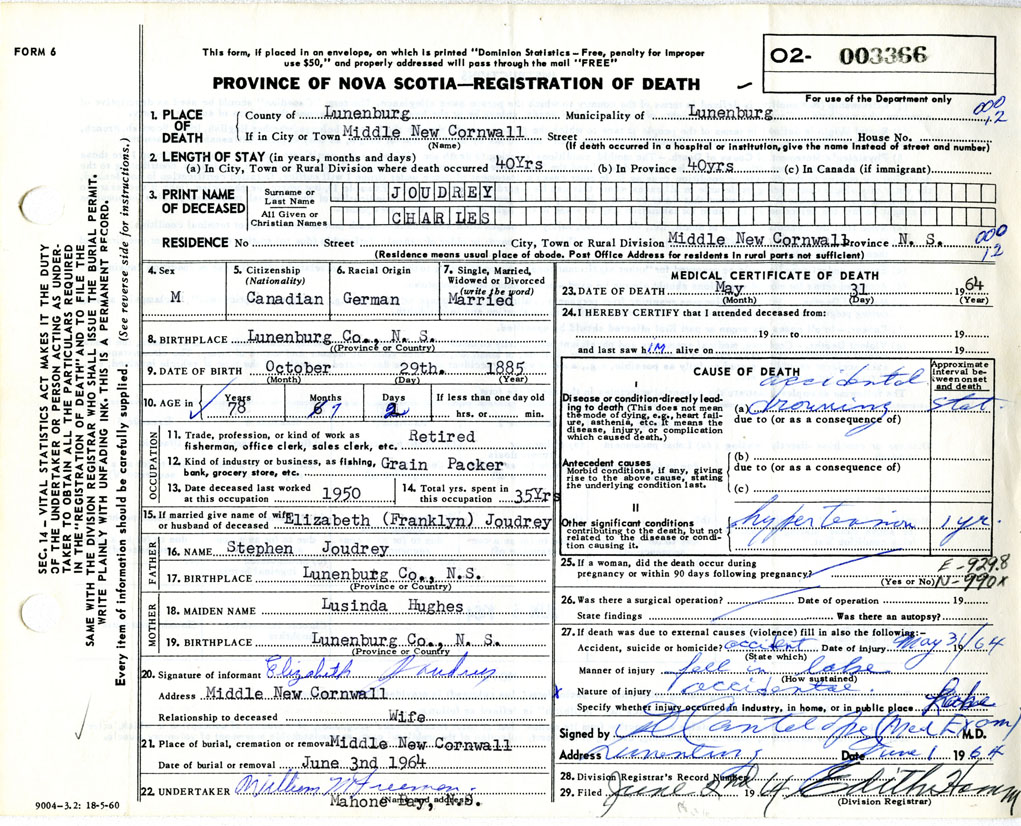 FORM 6
This form, if placed in an envelope, on which is printed "Dominion Statistics – Free, penalty for improper
use $50," and properly addressed will pass through the mail "FREE"
PROVINCE OF NOVA SCOTIA—REGISTRATION OF DEATH
O2- 003366
For use of the Department only
SEC. 14 – VITAL STATISTICS ACT MAKES IT THE DUTY
OF THE UNDERTAKER OR PERSON ACTING AS UNDER-
TAKER TO OBTAIN ALL THE PARTICULARS REQUIRED
IN THE "REGISTRATION OF DEATH" AND TO FILE THE
SAME WITH THE DIVISION REGISTRAR WHO SHALL ISSUE THE BURIAL PERMIT.
WRITE PLAINLY WITH UNFADING INK. THIS IS A PERMANENT RECORD.
Every item of information should be carefully supplied. (See reverse side for instructions.)
1. PLACE OF DEATH
County of Lunenburg Municipality of Lunenburg 000 12
If in City or Town Middle New Cornwall Street House No.
(Name) (If death occurred in a hospital or institution, give the name instead of street and number)
2. LENGTH OF STAY (in years, months and days)
(a) In City, Town or Rural Division where death occurred 40Yrs (b) In Province 40yrs (c) In Canada (if immigrant)
3. PRINT NAME OF DECEASED
Surname or Last Name JOUDREY
All Given or Christian Names CHARLES
RESIDENCE No Street City, Town or Rural Division Middle New Cornwall Province N. S. 000 12
(Residence means usual place of abode. Post Office Address for residents in rural parts not sufficient)
4. Sex M
5. Citizenship (Nationality) Canadian
6. Racial Origin German
7. Single, Married, Widowed or Divorced (write the word) Married
8. BIRTHPLACE Lunenburg Co., N. S.
(Province or Country)
9. DATE OF BIRTH October 29th. 1885
(Month) (Day) (Year)
10. AGE in Years 78 Months 6 7 Days 2 If less than one day old hrs. or min.
OCCUPATION
11. Trade, profession, or kind of work as fisherman, office clerk, sales clerk, etc. Retired
12. Kind of industry or business, as fishing, bank, grocery store, etc. Grain Packer
13. Date deceased last worked at this occupation 1950
14. Total yrs. spent in this occupation 35Yrs
15. If married give name of wife or husband of deceased Elizabeth (Franklyn) Joudrey
FATHER
16. NAME Stephen Joudrey
17. BIRTHPLACE Lunenburg Co., N.S.
(Province or Country)
MOTHER
18. MAIDEN NAME Lusinda Hughes
19. BIRTHPLACE Lunenburg Co., N. S.
(Province or Country)
20. Signature of informant Elizabeth Joudrey
Address Middle New Cornwall
Relationship to deceased Wife
21. Place of burial, cremation or removal Middle New Cornwall
Date of burial or removal June 3nd 1964
22. UNDERTAKER William M Freeman
Mahone Bay, N.S.
(Name and address)
9004-3.2: 18-5-60
MEDICAL CERTIFICATE OF DEATH
23. DATE OF DEATH May 31 1964
(Month) (Day) (Year)
24. I HEREBY CERTIFY that I attended deceased from:
19 to 19
and last saw him alive on 19
CAUSE OF DEATH
Approximate interval between onset and death
I
Disease or condition directly leading to death (This does not mean the mode of dying, e.g., heart failure, asthenia, etc. It means the disease, injury, or complication which caused death.)
(a) accidental drowning stat.
due to (or as a consequence of)
Antecedent causes
Morbid conditions, if any, giving rise to the above cause, stating the underlying condition last.
(b)
due to (or as a consequence of)
(c)
II
Other significant conditions contributing to the death, but not related to the disease or condition causing it.
hypertension 1 yr.
25. If a woman, did the death occur during pregnancy or within 90 days following pregnancy?
(Yes or No)
E-929.8
N-990x
26. Was there a surgical operation? Date of operation 19
State findings Was there an autopsy?
27. If death was due to external causes (violence) fill in also the following:-
Accident, suicide or homicide? accident Date of injury May 31/64
(State which)
Manner of injury fell in lake
(How sustained)
Nature of injury accidental.
Specify whether injury occurred in industry, in home, or in public place
Signed by (Med Exam) M.D.
Address Lunenburg Date June 1 1964
28. Division Registrar's Record Number
29. Filed June 2nd 1964
(Division Registrar)